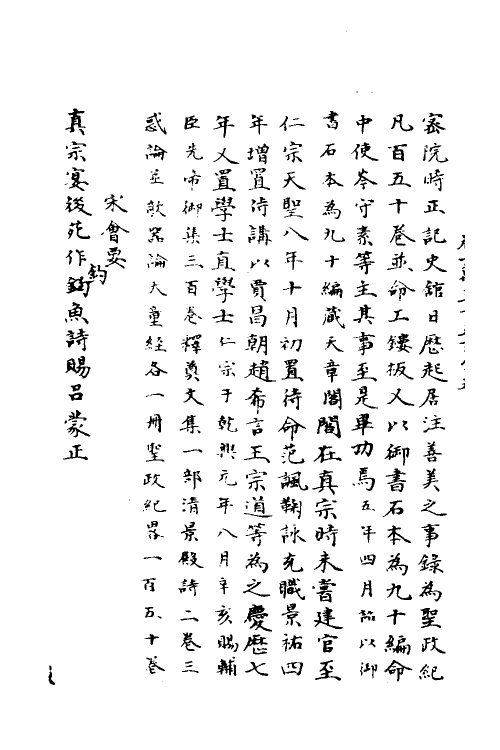 密院時正記史舘日歷起居注善美之事錄為聖政紀
凡百五十巻並命工鏤板又以御書石本為九十編命
中使岑守素等主其事至是畢功焉五年四月詔以御
書石本為九十編藏天章閣閣在真宗時未嘗建官至
仁宗天聖八年十月初置待命范諷鞫詠充職景祐四
年增置侍講以賈昌朝趙希言王宗道等為之慶歷七
年又置學士直學士仁宗于乾興元年八月辛亥賜輔
臣先帝御集三百巻釋奠文集一部清景殿詩二巻三
惑論並欹器論大童經各一冊聖政紀畧一百五十巻
宋會要
真宗宴後苑作釣魚詩賜呂蒙正